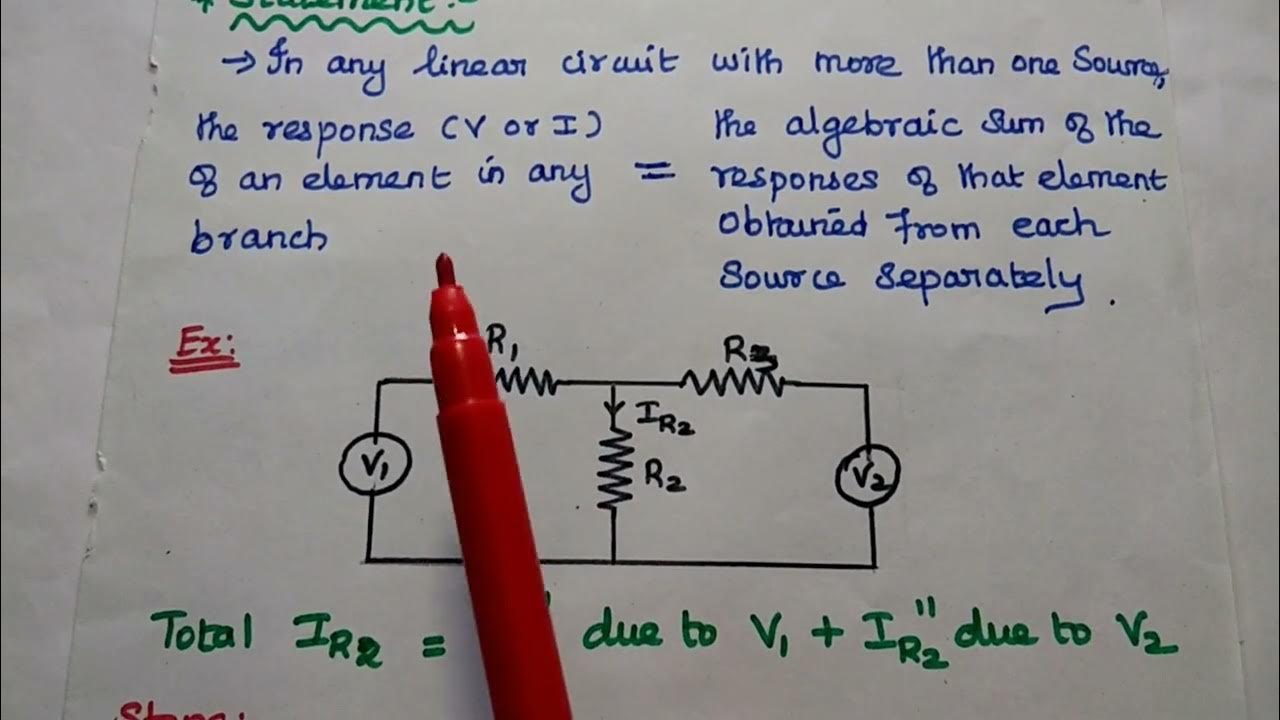 Statement:-
→ In any linear circuit with more than one Source,
the response (V or I)
of an element in any
branch
=
the algebraic sum of the
responses of that element
obtained from each
Source separately.
Ex:
R1
R3
IR2
V1
R2
V2
Total IR2 = " due to V1 + IR2" due to V2
Steps: